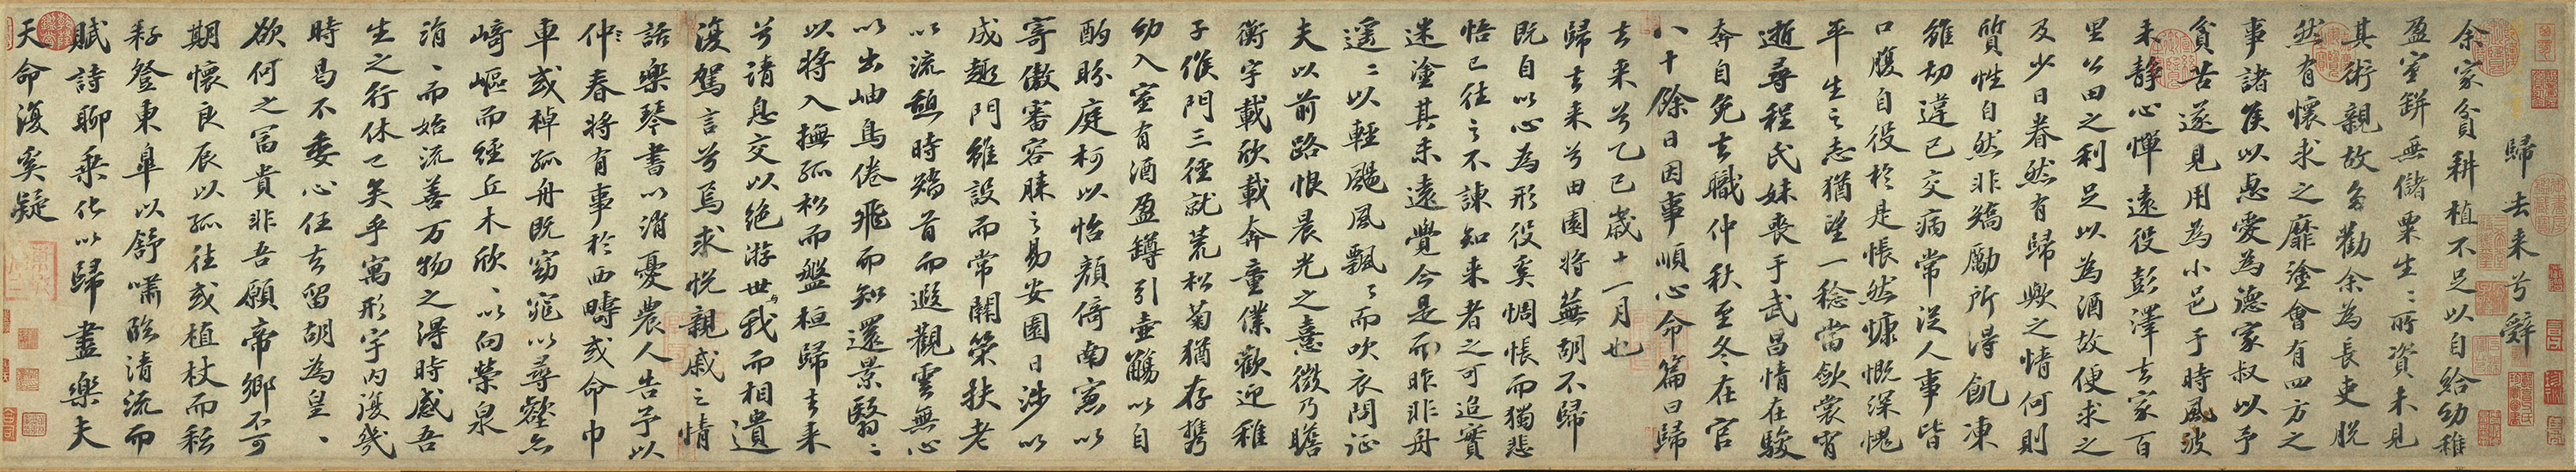 歸去来兮辭
余家貧耕植不足以自給幼稚
盈室缾無儲粟生〻所資未見
其術親故多勸余為長吏脫
然有懷求之靡塗會有四方之
事諸侯以惠愛為德家叔以予
貧苦遂見用為小邑于時風波
未静心憚遠役彭澤去家百
里公田之利足以為酒故便求之
及少日眷然有歸歟之情何則
質性自然非矯勵所得飢凍
雖切違已交病常從人事皆
口腹自役於是悵然慷慨深愧
平生之志猶望一稔當斂裳宵
逝尋程氏妹喪于武昌情在駿
奔自免去職仲秋至冬在官
八十餘日因事順心命篇曰歸
去来兮乙巳歲十一月也
歸去来兮田園將蕪胡不歸
既自以心為形役奚惆悵而獨悲
悟已往之不諫知来者之可追實
迷塗其未遠覺今是而昨非舟
遥〻以輕颺風飄〻而吹衣問征
夫以前路恨晨光之憙微乃瞻
衡宇載欣載奔童僕歡迎稚
子候門三徑就荒松菊猶存攜
幼入室有酒盈罇引壺觴以自
酌眄庭柯以怡顏倚南窻以
寄傲審容膝之易安園日涉以
成趣門雖設而常關策扶老
以流憩時矯首而遐觀雲無心
以出岫鳥倦飛而知還景翳〻
以將入撫孤松而盤桓歸去来
兮請息交以絕游世與我而相遺
復駕言兮焉求悅親戚之情
話樂琴書以消憂農人告予以
仲春將有事於西疇或命巾
車或棹孤舟既窈窕以尋壑亦
崎嶇而經丘木欣〻以向榮泉
涓〻而始流善万物之得時感吾
生之行休已矣乎寓形宇内復幾
時曷不委心任去留胡為皇〻
欲何之富貴非吾願帝鄉不可
期懷良辰以孤往或植杖而耘
耔登東皋以舒嘯臨清流而
賦詩聊乘化以歸盡樂夫
天命復奚疑